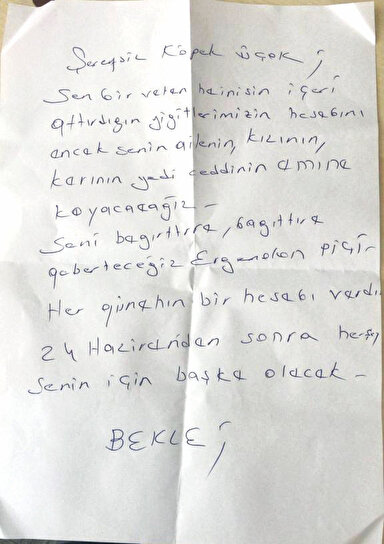 Şerefsiz Köpek üçok ;
Sen bir vatan hainisin içeri
attırdığın yiğitlerimizin hesabını
ancak senin ailenin, kızının,
karının yedi ceddinin amına
koyacacağız -
Seni bağırttıra, bağıttıra
geberteceğiz Ergenekon piçi-
Her günahın bir hesabı vardı
24 Haziran'dan sonra herşey
Senin için başka olacak -
BEKLE ;